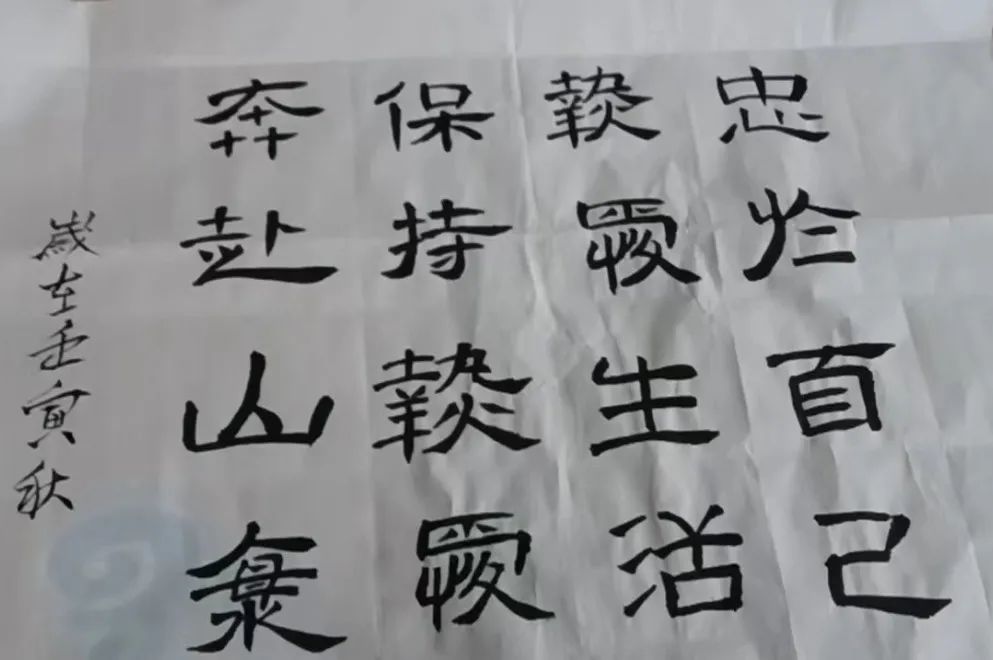 忠於自己
熱愛生活
保持熱愛
奔赴山海
歲在壬寅秋